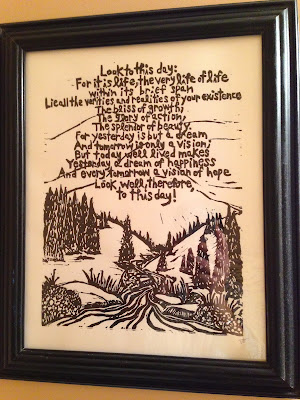 Look to this day:
For it is life, the very life of life
within its brief span
Lie all the verities and realities of your existence
The bliss of growth;
The glory of action,
The splendor of beauty.
For yesterday is but a dream
And tomorrow is only a vision;
But today well lived makes
Yesterday a dream of happiness
And every tomorrow a vision of hope
Look well, therefore,
to this day!